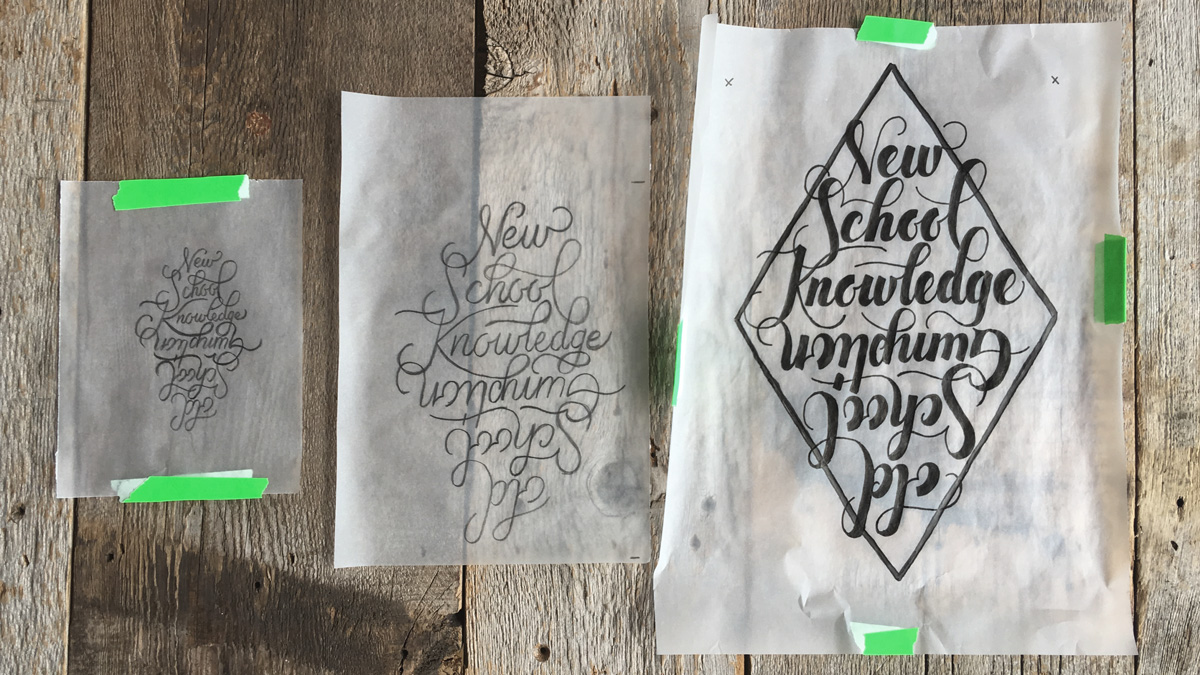 New
School
Knowledge
Old
School
Gumption
New
School
Knowledge
Old
School
Gumption
x x
New
School
Knowledge
Old
School
Gumption